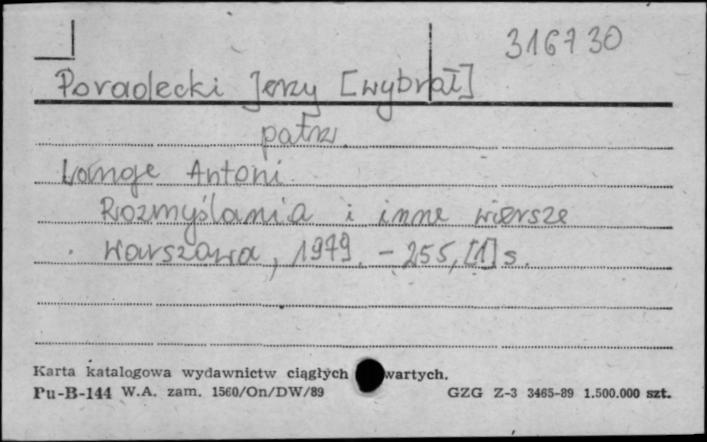 316730
Poradecki Jerzy [wybrał]
patrz
Lange Antoni
Rozmyślania i inne wiersze
Warszawa, 1979. - 255, [1] s.
Karta katalogowa wydawnictw ciągłych wartych.
Pu-B-144 W.A. zam. 1560/On/DW/89 GZG Z-3 3465-89 1.500.000 szt.